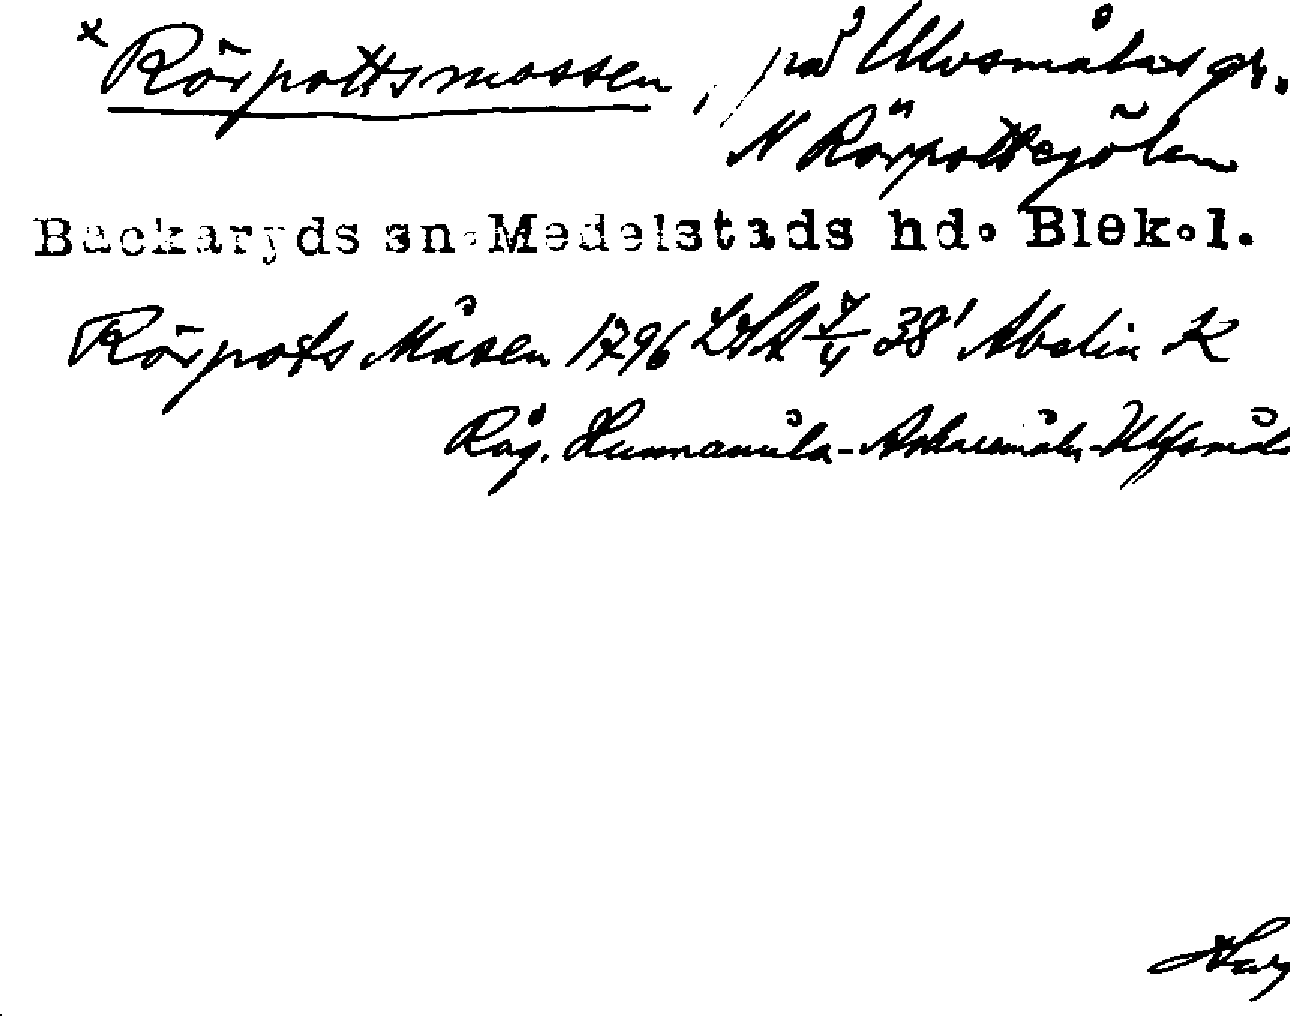 x Rörpottsmossen, på Ulvsmålas gr.
N Rörpottegölen
Backaryds sn. Medelstads hd. Blek.l.
Rörpots Måsen 1796 LSA 7/4 38' Abelin K
Råg. Hunnamåla-Askaremåla-Ulfsmåla